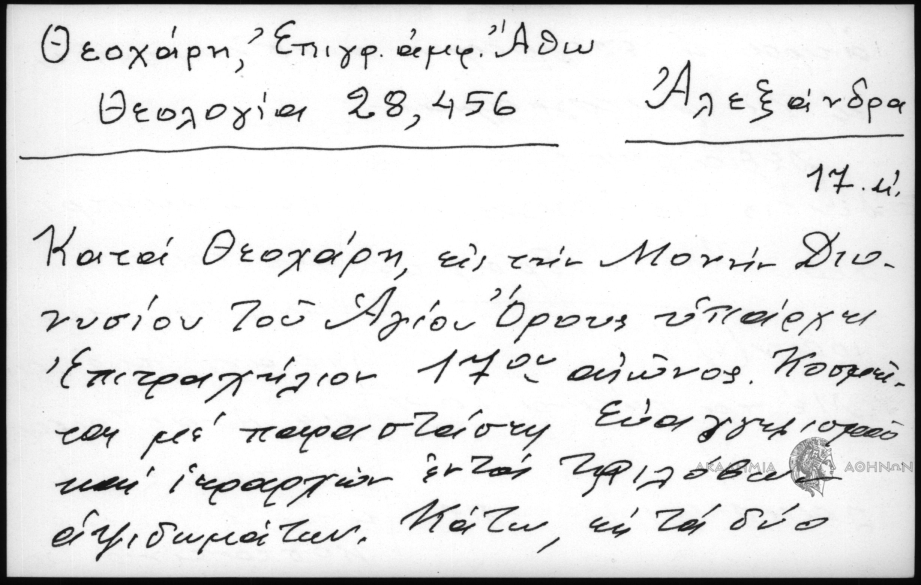 Θεοχάρη, Ἐπιγρ. ἀμφ. Ἄθω
Θεολογία 28,456
Ἀλεξάνδρα
17. αἰ.
Κατά Θεοχάρη, εἰς τήν Μονήν Διο-
νυσίου τοῦ Ἁγίου Ὄρους ὑπάρχει
Ἐπιτραχήλιον 17ου αἰῶνος. Κοσμεῖ-
ται μέ παραστάσεις Εὐαγγελισμοῦ
καί ἱεραρχῶν ἐντός τριλόβων
ἁψιδωμάτων. Κάτω, εἰς τά δύο
ΑΚΑΔΗΜΙΑ ΑΘΗΝΩΝ